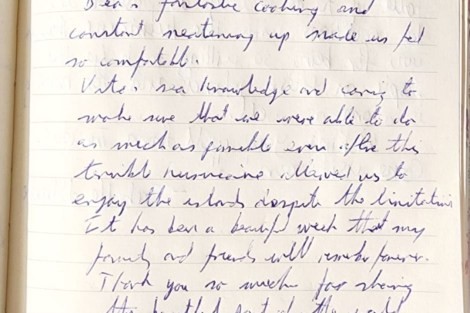 Bea's fantastic cooking and
constant neatening up made us feel
so comfortable.
Vita's sea knowledge and caring to
make sure that we were able to do
as much as possible even after this
terrible hurricane allowed us to
enjoy the islands despite the limitations
It has been a beautiful week that my
family and friends will remember forever.
Thank you so much for sharing
the beautiful